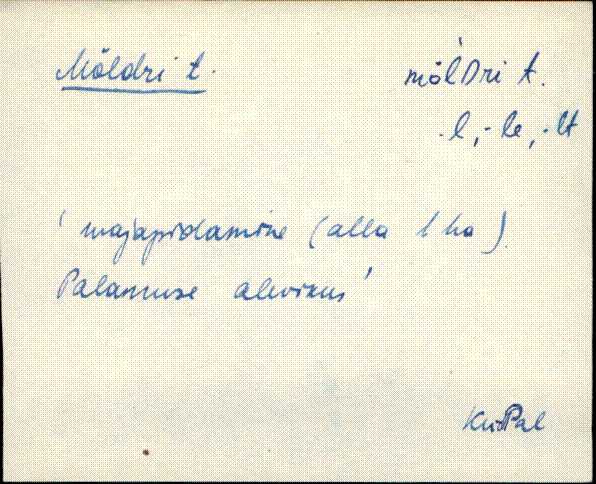 Möldri t. möl̀Dri t.
-l, -le, -lt
' majapidamine (alla 1 ha)
Palamuse alevikus '
KuiPal